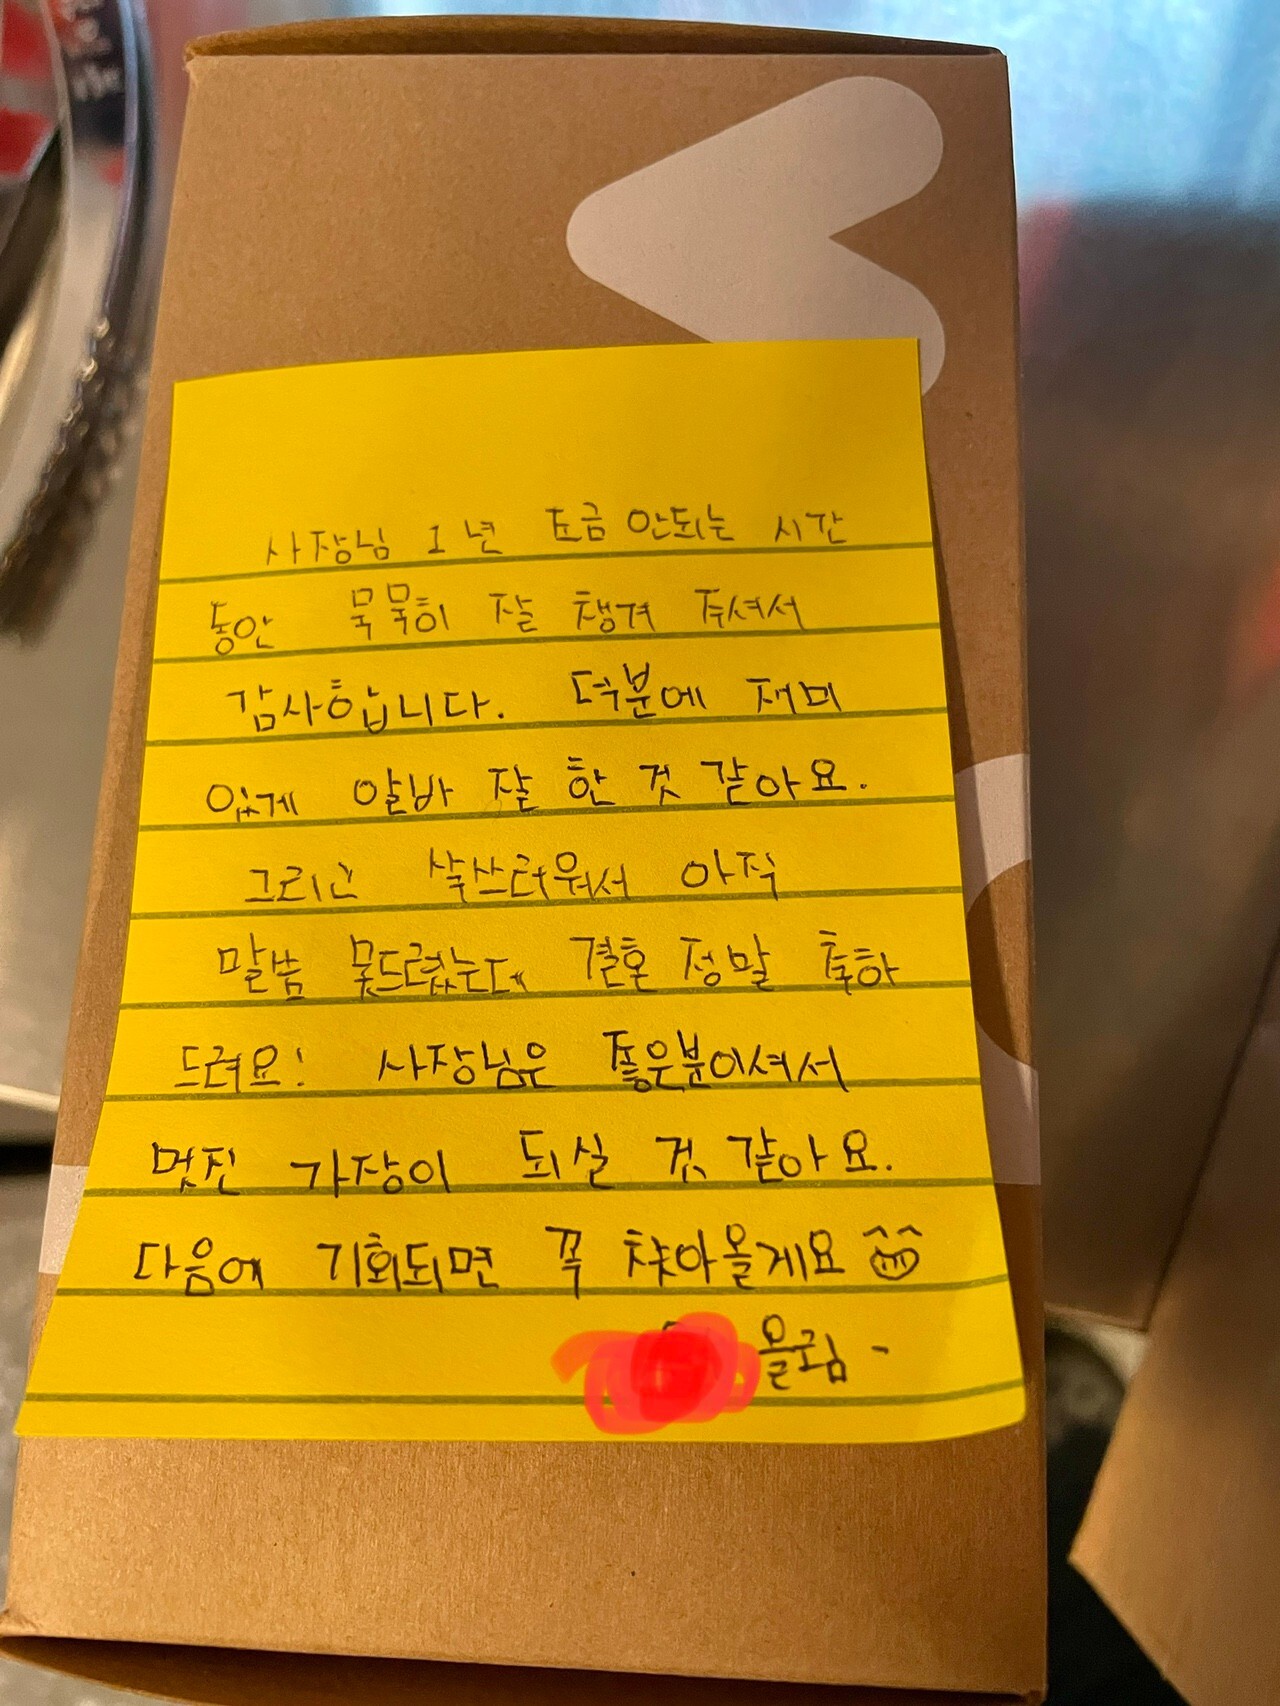 사장님 1년 조금 안되는 시간
동안 묵묵히 잘 챙겨 주셔서
감사합니다. 덕분에 재미
있게 알바 잘 한 것 같아요.
그리고 쑥쓰러워서 아직
말씀 못드렸는데 결혼 정말 축하
드려요! 사장님은 좋은분이셔서
멋진 가장이 되실 것 같아요.
다음에 기회되면 꼭 찾아올게요
올림 -